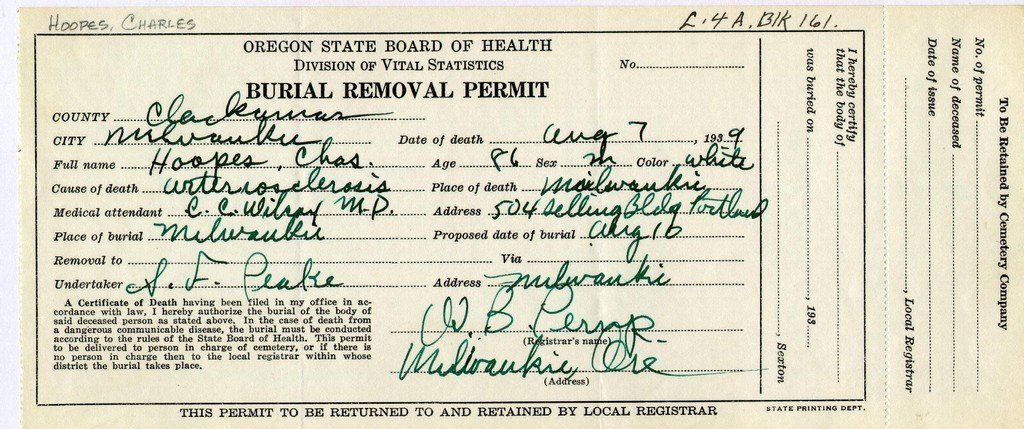 HOOPES, CHARLES
L. 4 A, Blk 161.
OREGON STATE BOARD OF HEALTH
DIVISION OF VITAL STATISTICS
No.
BURIAL REMOVAL PERMIT
COUNTY Clackamas
CITY Milwaukie Date of death Aug 7, 1939
Full name Hoopes, Chas. Age 86 Sex M Color White
Cause of death arteriosclerosis Place of death Milwaukie
Medical attendant C. C. M.D. Address 504 Selling Bldg Portland
Place of burial Milwaukie Proposed date of burial Aug 10
Removal to Via
Undertaker Peake Address Milwaukie
A Certificate of Death having been filed in my office in ac-
cordance with law, I hereby authorize the burial of the body of
said deceased person as stated above. In the case of death from
a dangerous communicable disease, the burial must be conducted
according to the rules of the State Board of Health. This permit
to be delivered to person in charge of cemetery, or if there is
no person in charge then to the local registrar within whose
district the burial takes place.
W. B.
(Registrar's name)
Milwaukie, Ore
(Address)
THIS PERMIT TO BE RETURNED TO AND RETAINED BY LOCAL REGISTRAR
STATE PRINTING DEPT.
I hereby certify
that the body of
was buried on , 193
, Sexton
To Be Retained by Cemetery Company
No. of permit
Name of deceased
Date of issue
, Local Registrar